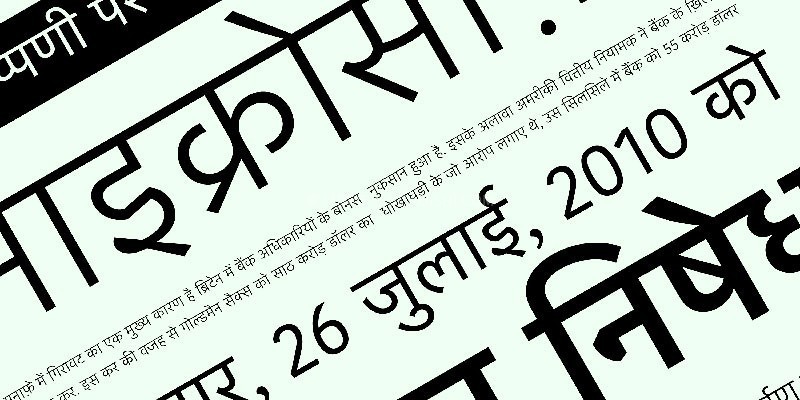 प्पणी पर
माइक्रोसॉ
मुनाफ़े में गिरावट का एक मुख्य कारण है ब्रिटेन में बैंक अधिकारियों के बोनस नुकसान हुआ है. इसके अलावा अमरीकी वित्तीय नियामक ने बैंक के ख़िल
कर. इस कर की वजह से गोल्डमैन सैक्स को साठ करोड़ डॉलर का धोखाधड़ी के जो आरोप लगाए थे, उस सिलसिले में बैंक को 55 करोड़ डॉलर
26 जुलाई, 2010 को
निषेध